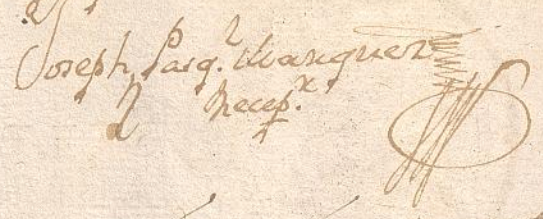 Joseph Pasq.l Manguez
Recep.x